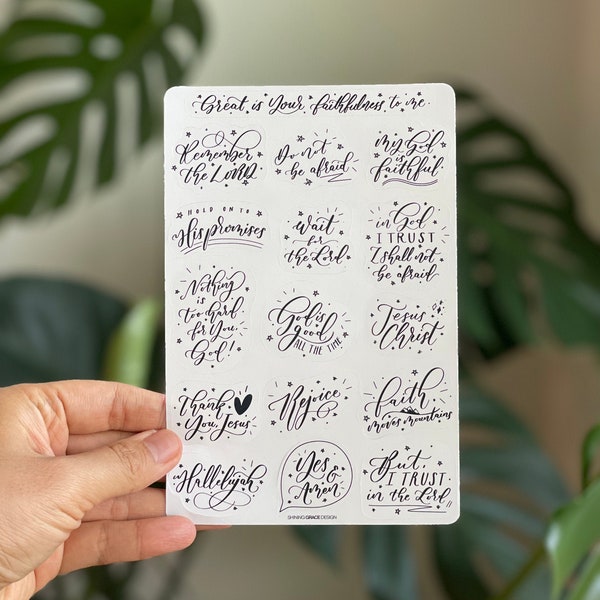 Great is Your faithfulness to me.
Remember
the LORD
Do not
be afraid
My God
is
faithful
HOLD ON TO
His promises
Wait
for
the Lord
in God
I TRUST
I shall not
be afraid
Nothing
is
too hard
for You,
God!
God is
good
ALL THE TIME
Jesus
Christ
Thank
You, Jesus
Rejoice
faith
moves mountains
Hallelujah
Yes
&
Amen
But,
I TRUST
in the Lord
SHINING GRACE DESIGN